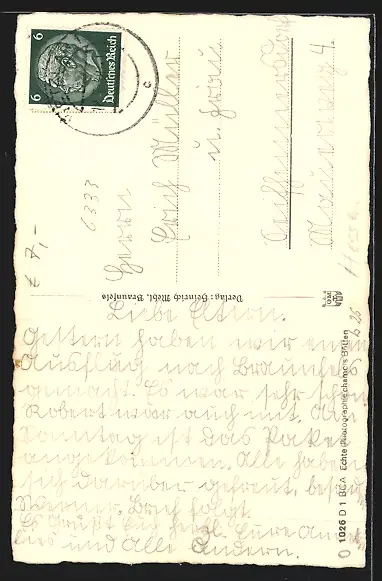 6
6
Deutsches Reich
Herrn
Erich Müller
u. Frau
Mauerweg 4.
Hessen
6333
€ 7,-
Verlag: Heinrich Mehl, Braunfels
Liebe Eltern.
Gestern haben wir einen
Ausflug nach Braunfels
gemacht. Es war sehr schön
Robert war auch mit. Am
Sonntag ist das Paket
angekommen. Alle haben
sich darüber gefreut,
Werner. Brief folgt.
Es Grüßt Euch herzl. Eure
und Alle Andern.
1026 D 1 BCA Echte Photographie